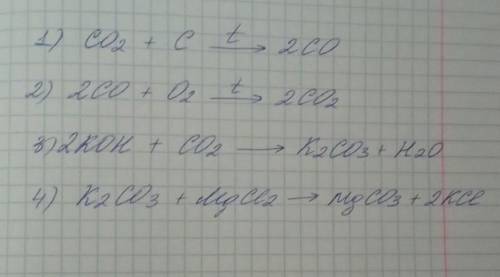 1) CO2 + C t→ 2CO
2) 2CO + O2 t→ 2CO2
3) 2KOH + CO2 → K2CO3 + H2O
4) K2CO3 + MgCl2 → MgCO3 + 2KCl